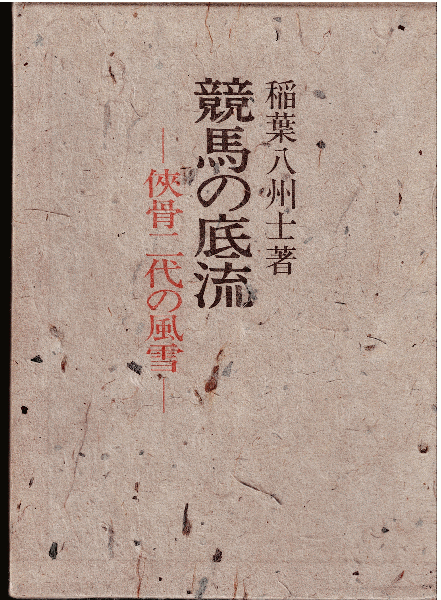 稲葉八州士著
競馬の底流
―侠骨二代の風雪―